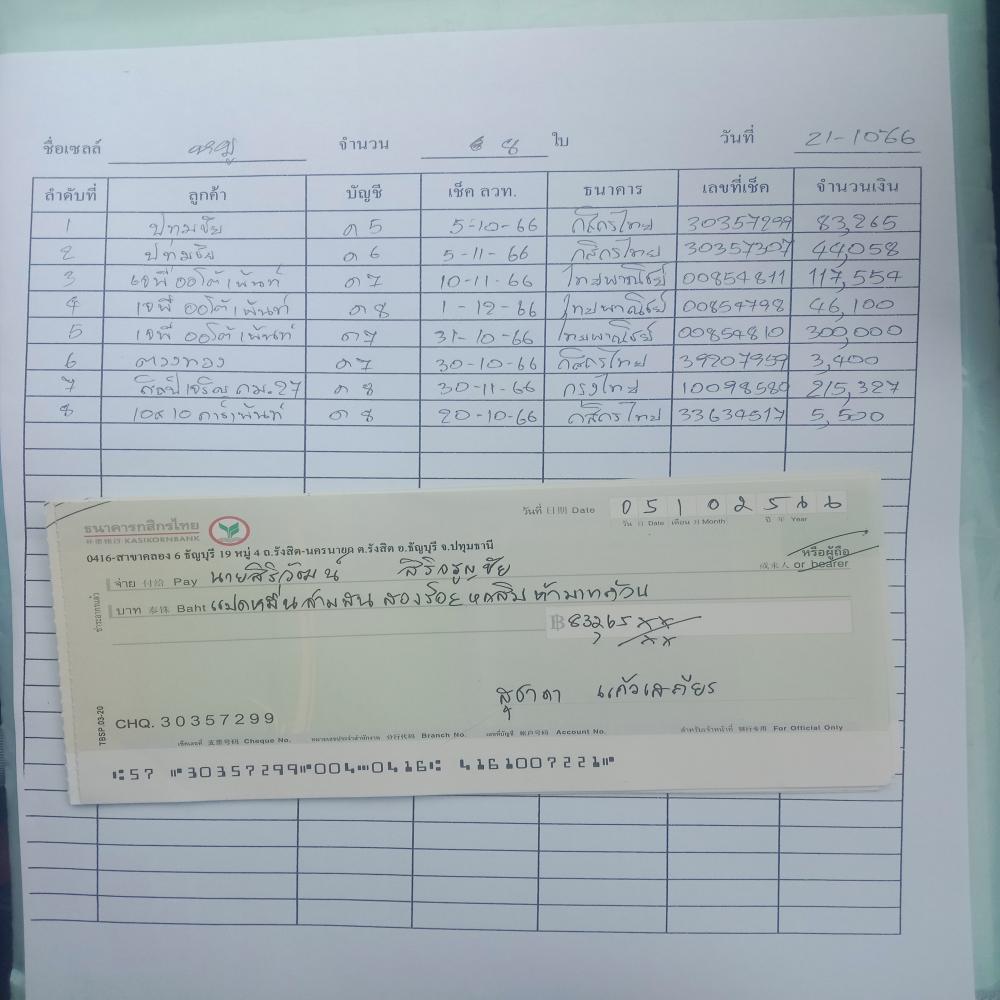 ชื่อเซลล์ หมู จำนวน 8 ใบ วันที่ 21-10-66
ลำดับที่ ลูกค้า บัญชี เช็ค ลวท. ธนาคาร เลขที่เช็ค จำนวนเงิน
1 ปทุมชัย ด 5 5-10-66 กสิกรไทย 30357299 83,265
2 ปทุมชัย ด 6 5-11-66 กสิกรไทย 30357307 44,058
3 เจพี ออโต้เพ้นท์ ด 7 10-11-66 ไทยพาณิชย์ 00854811 117,554
4 เจพี ออโต้เพ้นท์ ด 8 1-12-66 ไทยพาณิชย์ 00854798 46,100
5 เจพี ออโต้เพ้นท์ ด 7 31-10-66 ไทยพาณิชย์ 00854810 300,000
6 ดวงทอง ด 7 30-10-66 กสิกรไทย 39207959 3,400
7 ศิลป์เจริญ กม.27 ด 8 30-11-66 กรุงไทย 10098580 215,327
8 คาร์เพ้นท์ ด 8 20-10-66 กสิกรไทย 33634517 5,500
ธนาคารกสิกรไทย
KASIKORNBANK
วันที่ 日期 Date 05102566
วัน 日 Date เดือน 月 Month ปี 年 Year
0416-สาขาคลอง 6 ธัญบุรี 19 หมู่ 4 ถ.รังสิต-นครนายก ต.รังสิต อ.ธัญบุรี จ.ปทุมธานี
หรือผู้ถือ
或来人 or bearer
จ่าย 付给 Pay นายสิริวัฒน์ สิริอรุณชัย
บาท 泰铢 Baht แปดหมื่นสามพันสองร้อยหกสิบห้าบาทถ้วน
฿ 83,265
สุชาดา แก้วเสถียร
TBSP.03-20
CHQ. 30357299
เช็คเลขที่ 支票号码 Cheque No. หมายเลขประจำสำนักงาน 分行代码 Branch No. เลขที่บัญชี 帐户号码 Account No. สำหรับเจ้าหน้าที่ 银行专用 For Official Only
⑆57 ⑈30357299⑈004⑉0416⑆ 4161007221⑈